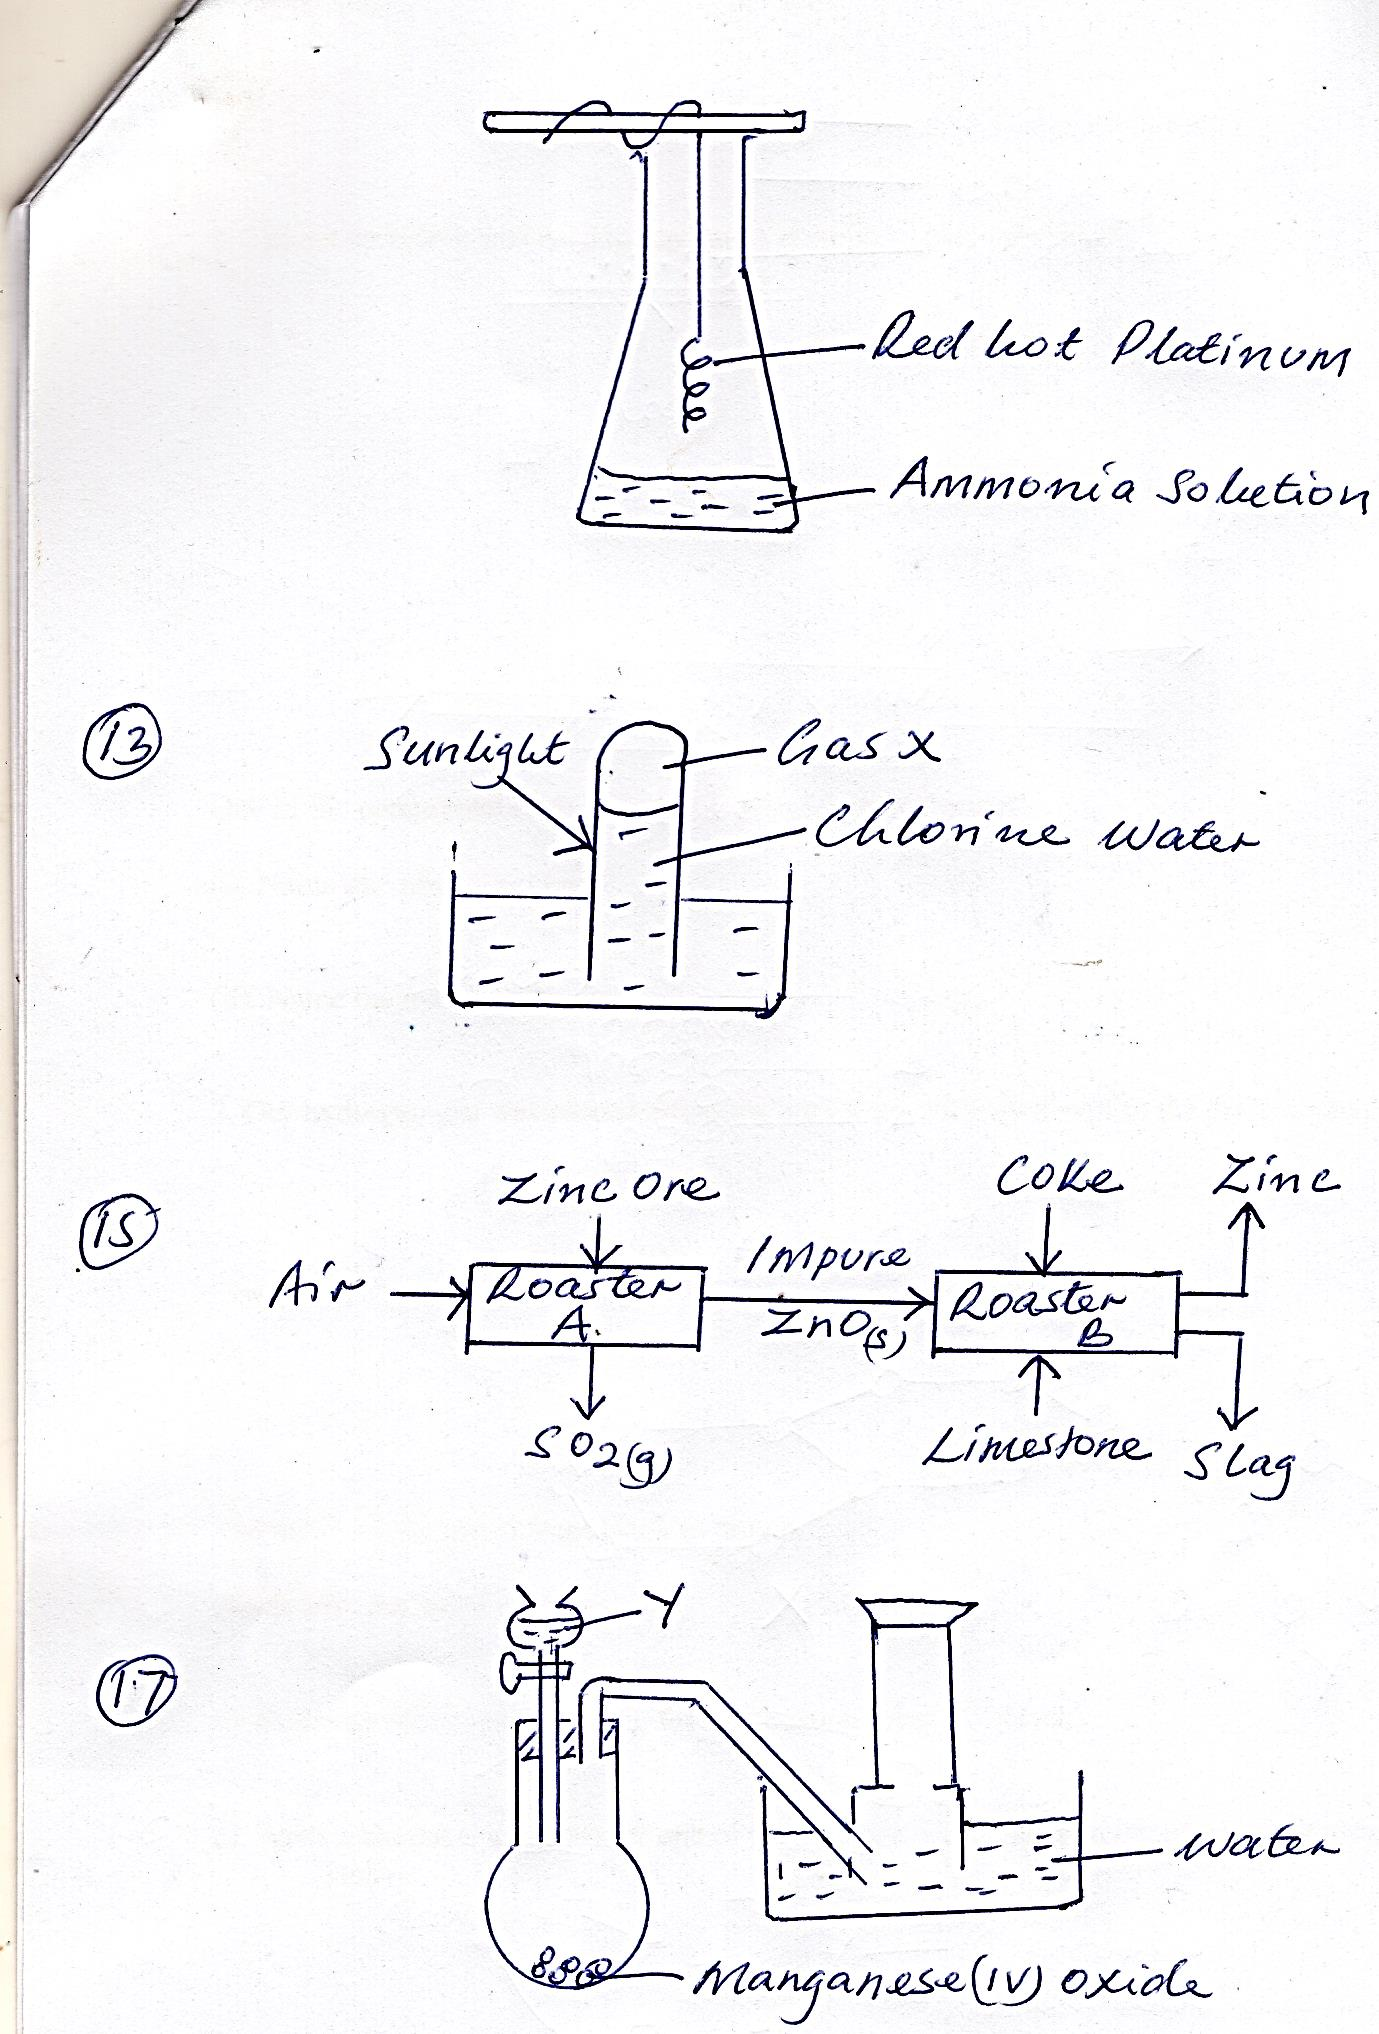 Red hot Platinum
Ammonia Solution
13
Sunlight
Gas X
Chlorine Water
15
Zinc Ore
Coke
Zinc
Air
Roaster
A.
Impure
ZnO(s)
Roaster
B
SO2(g)
Limestone
Slag
17
Y
Water
Manganese(IV) Oxide